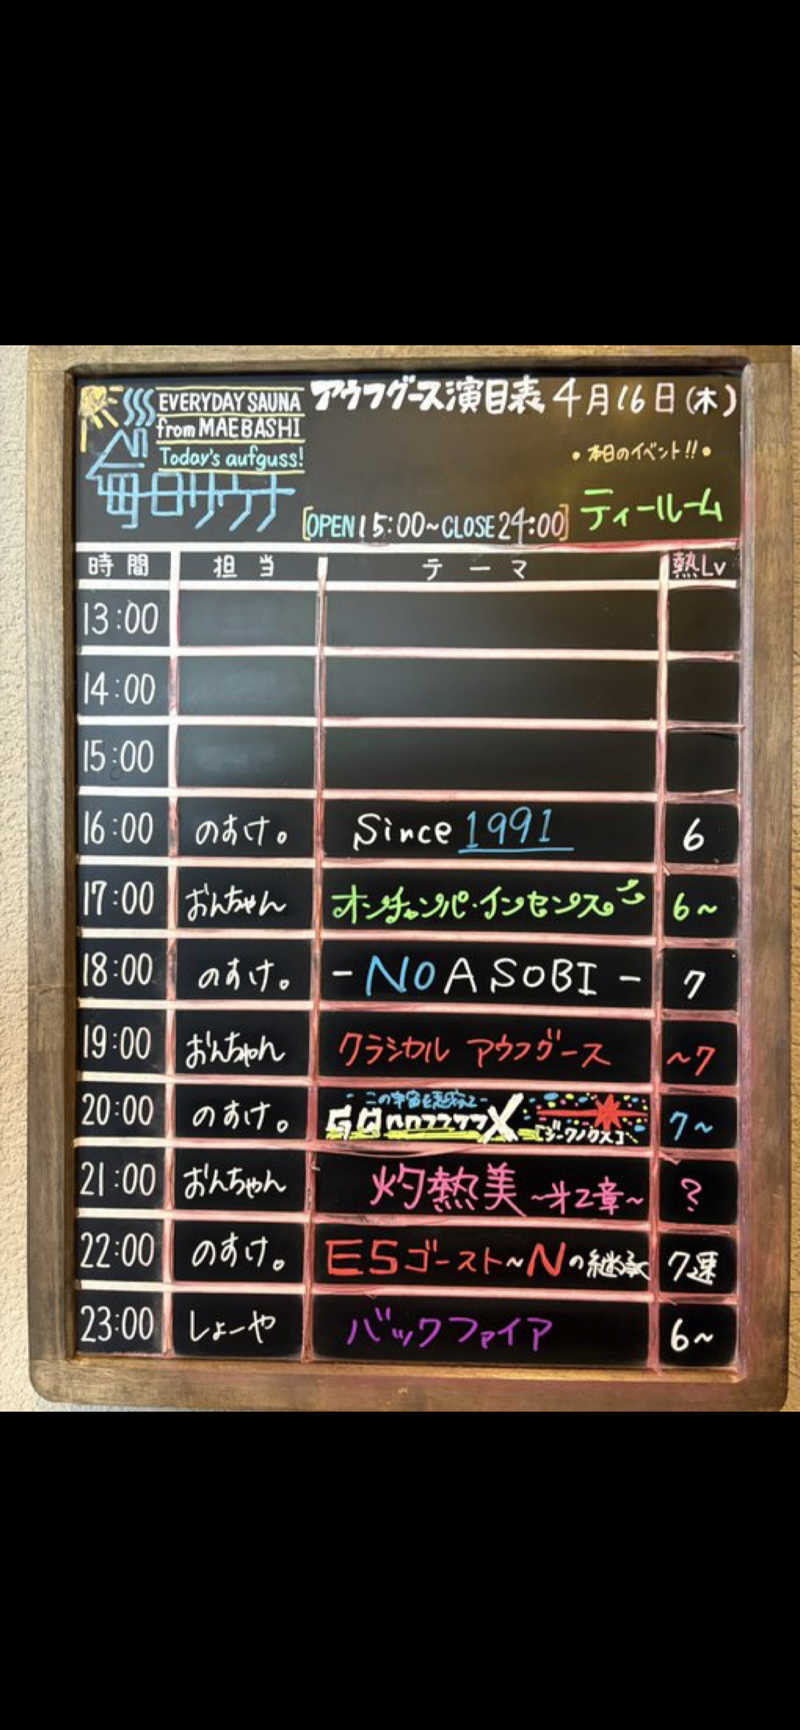 EVERYDAY SAUNA
from MAEBASHI
Today's aufguss!
毎日サウナ
アウフグース演目表 4月16日(木)
・本日のイベント!!・
[OPEN 15:00~CLOSE 24:00] ティールーム
時間 担当 テーマ 熱Lv
13:00
14:00
15:00
16:00 のすけ。 Since 1991 6
17:00 おんちゃん オンチャンパ・インセンス 6~
18:00 のすけ。 -NOASOBI- 7
19:00 おんちゃん クラシカル アウフグース ~7
20:00 のすけ。 -この宇宙を 7~
21:00 おんちゃん 灼熱美~第2章~ ?
22:00 のすけ。 ESゴースト~Nの継承 7速
23:00 しょーや バックファイア 6~